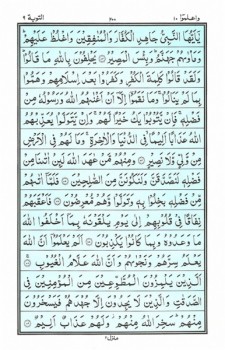 واعلموا ١٠ ٢٠٠ التوبة ٩
يٰۤاَيُّهَا النَّبِيُّ جَاهِدِ الْكُفَّارَ وَالْمُنٰفِقِيْنَ وَاغْلُظْ عَلَيْهِمْ
وَمَاْوٰىهُمْ جَهَنَّمُ وَبِئْسَ الْمَصِيْرُ ۝ يَحْلِفُوْنَ بِاللّٰهِ مَا قَالُوْا
وَلَقَدْ قَالُوْا كَلِمَةَ الْكُفْرِ وَكَفَرُوْا بَعْدَ اِسْلَامِهِمْ وَهَمُّوْا
بِمَا لَمْ يَنَالُوْا وَمَا نَقَمُوْۤا اِلَّاۤ اَنْ اَغْنٰهُمُ اللّٰهُ وَرَسُوْلُهٗ مِنْ
فَضْلِهٖ فَاِنْ يَّتُوْبُوْا يَكُ خَيْرًا لَّهُمْ وَاِنْ يَّتَوَلَّوْا يُعَذِّبْهُمُ
اللّٰهُ عَذَابًا اَلِيْمًا فِي الدُّنْيَا وَالْاٰخِرَةِ وَمَا لَهُمْ فِي الْاَرْضِ
مِنْ وَّلِيٍّ وَّلَا نَصِيْرٍ ۝ وَمِنْهُمْ مَّنْ عٰهَدَ اللّٰهَ لَئِنْ اٰتٰىنَا مِنْ
فَضْلِهٖ لَنَصَّدَّقَنَّ وَلَنَكُوْنَنَّ مِنَ الصّٰلِحِيْنَ ۝ فَلَمَّاۤ اٰتٰىهُمْ
مِّنْ فَضْلِهٖ بَخِلُوْا بِهٖ وَتَوَلَّوْا وَّهُمْ مُّعْرِضُوْنَ ۝ فَاَعْقَبَهُمْ
نِفَاقًا فِيْ قُلُوْبِهِمْ اِلٰى يَوْمِ يَلْقَوْنَهٗ بِمَاۤ اَخْلَفُوا اللّٰهَ
مَا وَعَدُوْهُ وَبِمَا كَانُوْا يَكْذِبُوْنَ ۝ اَلَمْ يَعْلَمُوْۤا اَنَّ اللّٰهَ
يَعْلَمُ سِرَّهُمْ وَنَجْوٰىهُمْ وَاَنَّ اللّٰهَ عَلَّامُ الْغُيُوْبِ ۝
اَلَّذِيْنَ يَلْمِزُوْنَ الْمُطَّوِّعِيْنَ مِنَ الْمُؤْمِنِيْنَ فِي
الصَّدَقٰتِ وَالَّذِيْنَ لَا يَجِدُوْنَ اِلَّا جُهْدَهُمْ فَيَسْخَرُوْنَ
مِنْهُمْ سَخِرَ اللّٰهُ مِنْهُمْ وَلَهُمْ عَذَابٌ اَلِيْمٌ ۝
منزل ٢